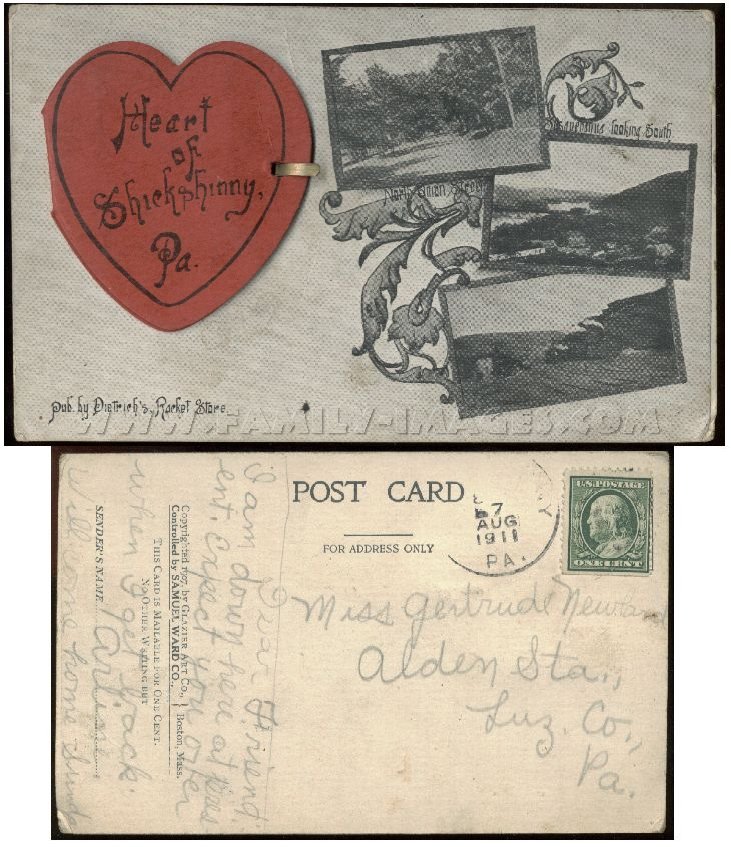 Heart
of
Shickshinny,
Pa.
North Union Street
Susquehanna looking South
Pub. by Dietrich's, Racket Store
WWW.FAMILY-IMAGES.COM
POST CARD
FOR ADDRESS ONLY
7
AUG
1911
PA.
U.S. POSTAGE
ONE CENT
Miss Gertrude
Alden Sta.,
Luz. Co.,
Pa.
Dear Friend:
I am down here at pres
ent. Expect you over
Copyrighted 1907, by GLAZIER ART CO.,
Controlled by SAMUEL WARD CO.,
Boston, Mass.
THIS CARD IS MAILABLE FOR ONE CENT.
NO OTHER WRITING BUT
when I get back.
SENDER'S NAME
Will come home Sunda